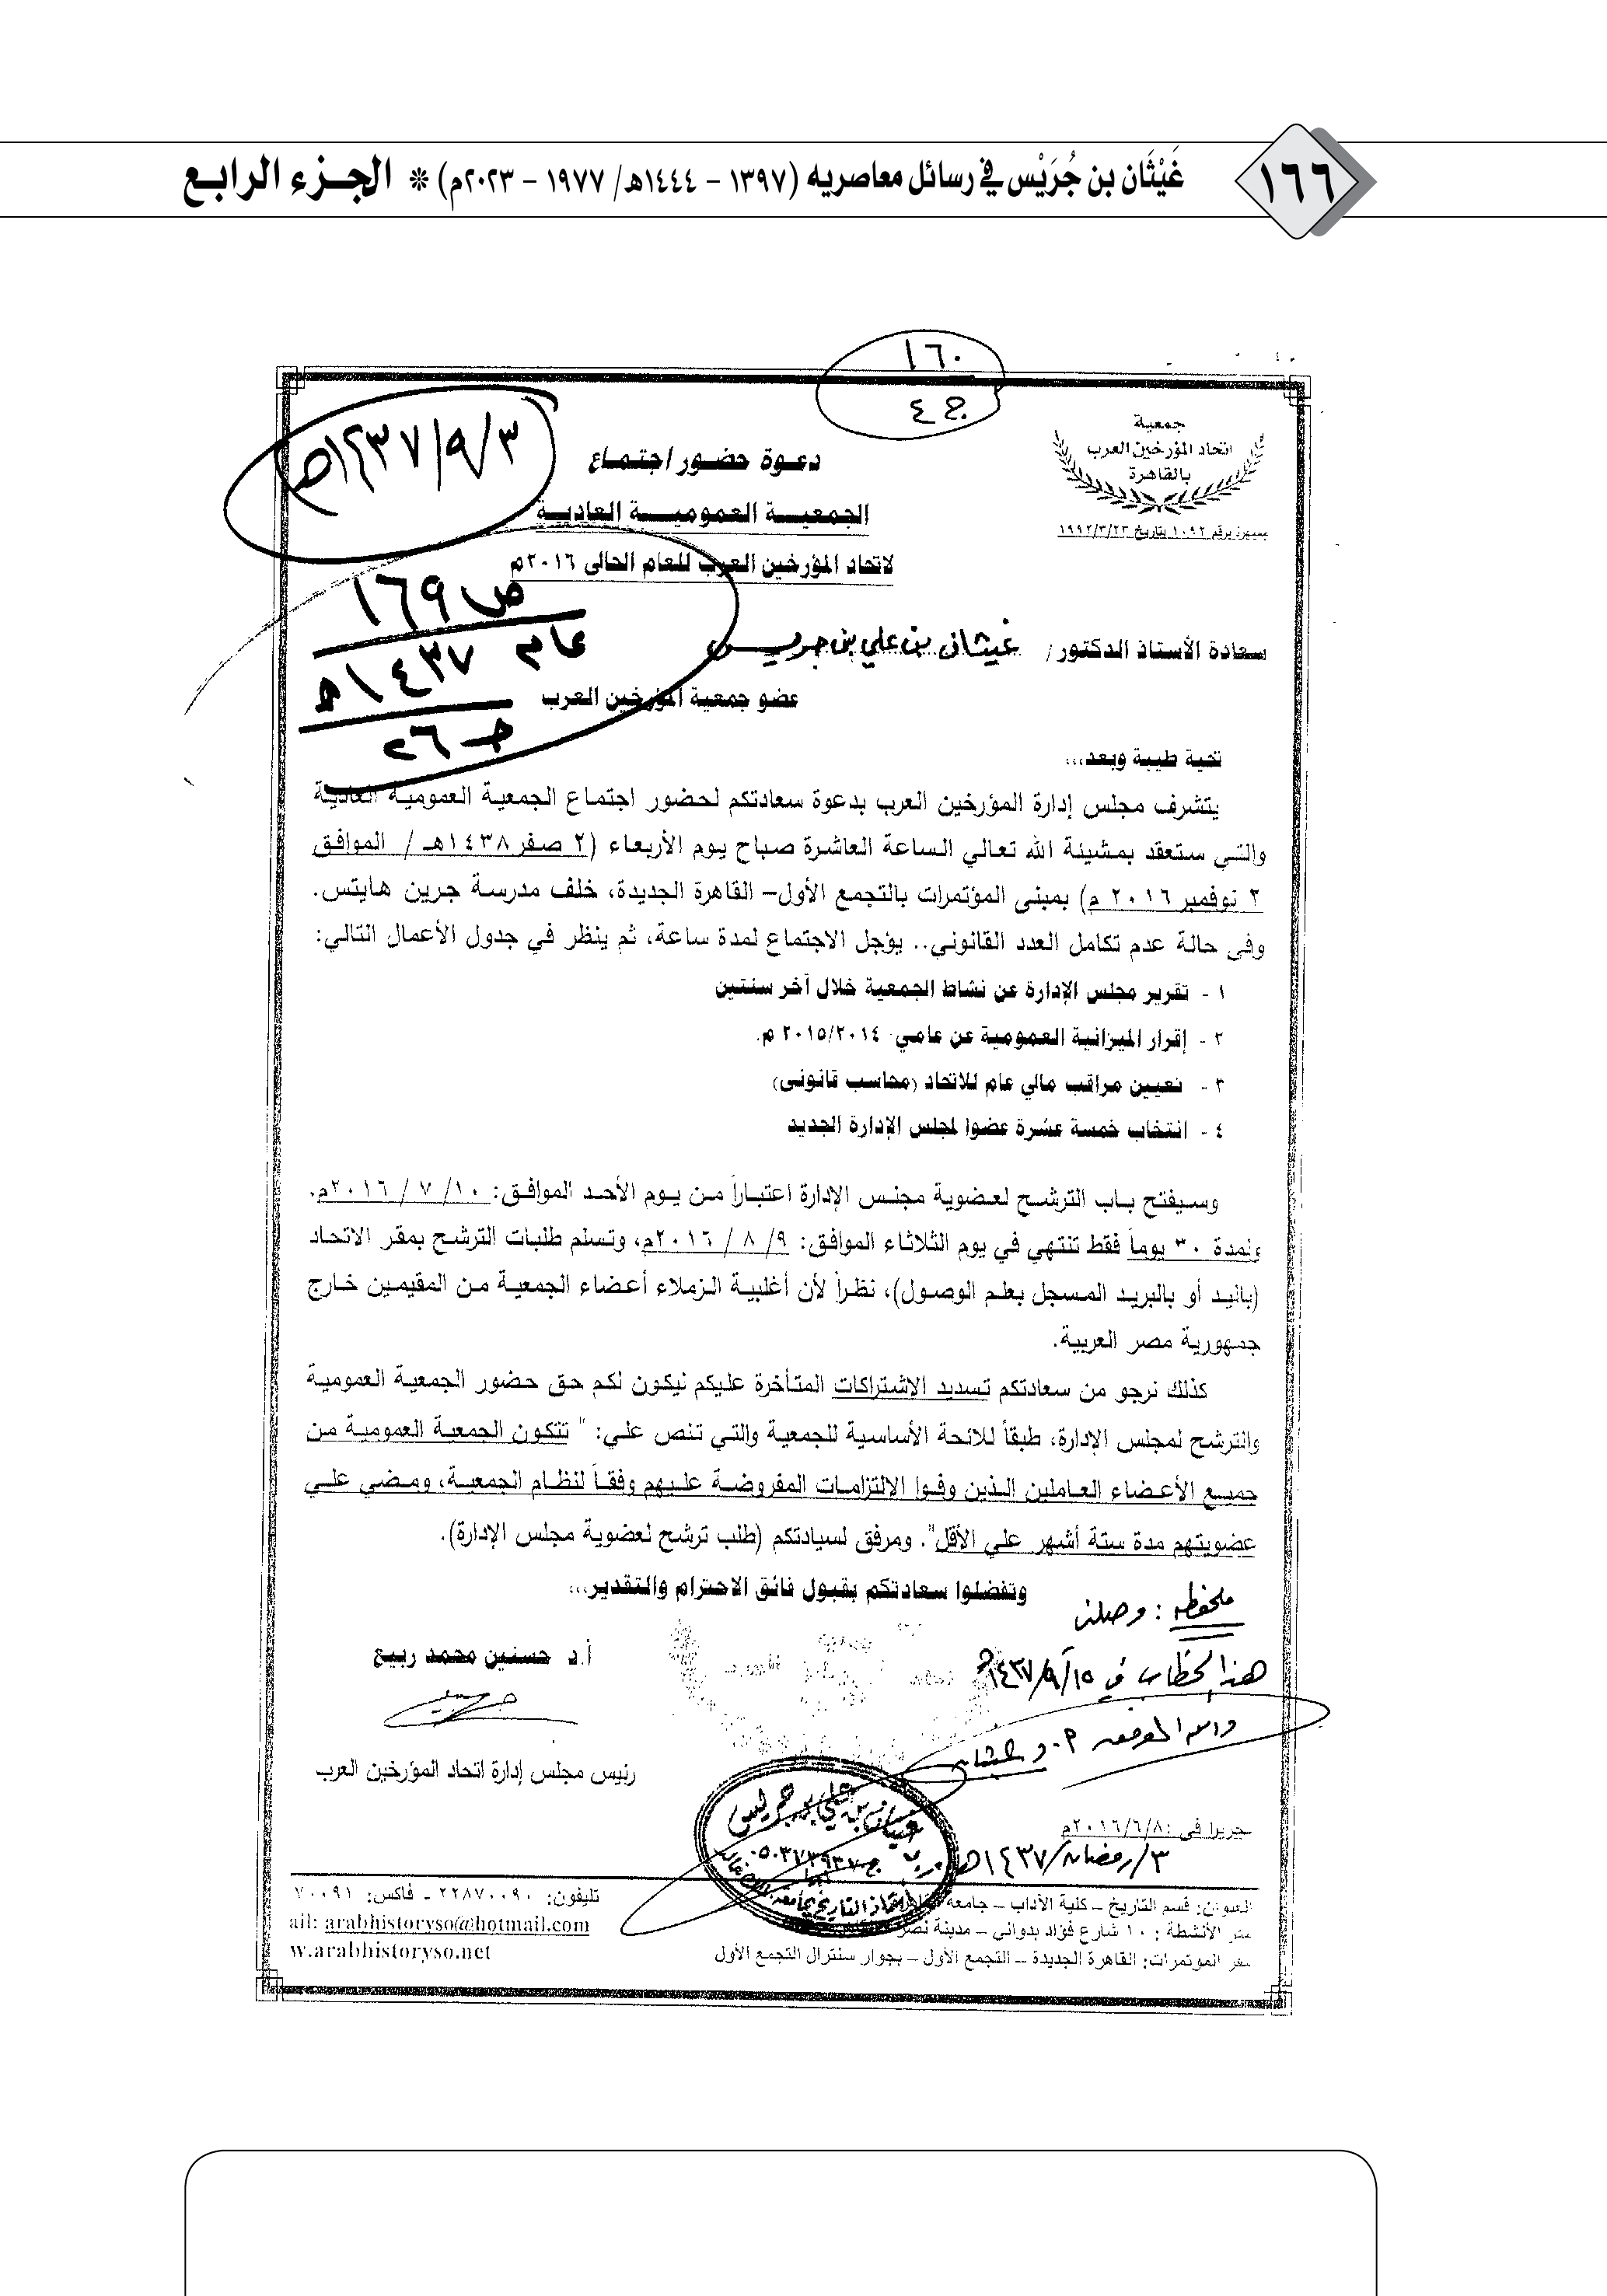 ١٦٦
غَيْثَان بن جُرَيْس في رسائل معاصريه (١٣٩٧ - ١٤٤٤هـ/ ١٩٧٧ - ٢٠٢٣م) * الجزء الرابع
١٦٠
ج ٤
٣/٩/١٤٣٧هـ
جمعية
اتحاد المؤرخين العرب
بالقاهرة
برقم ١٠٩٢ بتاريخ ١٩٩٢/٣/٢٣
دعوة حضور اجتماع
الجمعية العمومية العادية
لاتحاد المؤرخين العرب للعام الحالى ٢٠١٦م
ص ١٦٩
عام ١٤٣٧هـ
جـ ٢٦
سعادة الأستاذ الدكتور / غيثان بن علي بن جريس
عضو جمعية المؤرخين العرب
تحية طيبة وبعد...
يتشرف مجلس إدارة المؤرخين العرب بدعوة سعادتكم لحضور اجتماع الجمعية العمومية العادية
والتي ستعقد بمشيئة الله تعالي الساعة العاشرة صباح يوم الأربعاء (٢ صفر ١٤٣٨هـ / الموافق
٢ نوفمبر ٢٠١٦ م) بمبنى المؤتمرات بالتجمع الأول- القاهرة الجديدة، خلف مدرسة جرين هايتس.
وفى حالة عدم تكامل العدد القانوني.. يؤجل الاجتماع لمدة ساعة، ثم ينظر في جدول الأعمال التالي:
١ - تقرير مجلس الإدارة عن نشاط الجمعية خلال آخر سنتين
٢ - إقرار الميزانية العمومية عن عامي ٢٠١٥/٢٠١٤ م.
٣ - تعيين مراقب مالي عام للاتحاد (محاسب قانونى)
٤ - انتخاب خمسة عشرة عضوا لمجلس الإدارة الجديد
وسيفتح باب الترشح لعضوية مجلس الإدارة اعتباراً من يوم الأحد الموافق: ١٠/ ٧ / ٢٠١٦م.
ولمدة ٣٠ يوماً فقط تنتهي في يوم الثلاثاء الموافق: ٩/ ٨ / ٢٠١٦م، وتسلم طلبات الترشح بمقر الاتحاد
(باليد أو بالبريد المسجل بعلم الوصول)، نظراً لأن أغلبية الزملاء أعضاء الجمعية من المقيمين خارج
جمهورية مصر العربية.
كذلك نرجو من سعادتكم تسديد الاشتراكات المتأخرة عليكم ليكون لكم حق حضور الجمعية العمومية
والترشح لمجلس الإدارة، طبقاً للائحة الأساسية للجمعية والتي تنص علي: " تتكون الجمعية العمومية من
جميع الأعضاء العاملين الذين وفوا الالتزامات المفروضة عليهم وفقاً لنظام الجمعية، ومضي علي
عضويتهم مدة ستة أشهر علي الأقل". ومرفق لسيادتكم (طلب ترشح لعضوية مجلس الإدارة).
وتفضلوا سعادتكم بقبول فائق الاحترام والتقدير...
ملحظه : وصلني
هذا الخطاب في ١٥/٩/١٤٣٧هـ
أ.د حسنين محمد ربيع
رئيس مجلس إدارة اتحاد المؤرخين العرب
غيثان بن علي بن جريس
تحريرا في :٢٠١٦/٦/٨م
٣/رمضان/١٤٣٧هـ
العنوان: قسم التاريخ – كلية الآداب – جامعة
مقر الأنشطة : ١٠ شارع فؤاد بدوانى – مدينة نصر
مقر المؤتمرات: القاهرة الجديدة – التجمع الأول – بجوار سنترال التجمع الأول
تليفون: ٢٢٨٧٠٠٩٠ - فاكس: ٧٠٠٩١
ail: arabhistoryso@hotmail.com
w.arabhistoryso.net